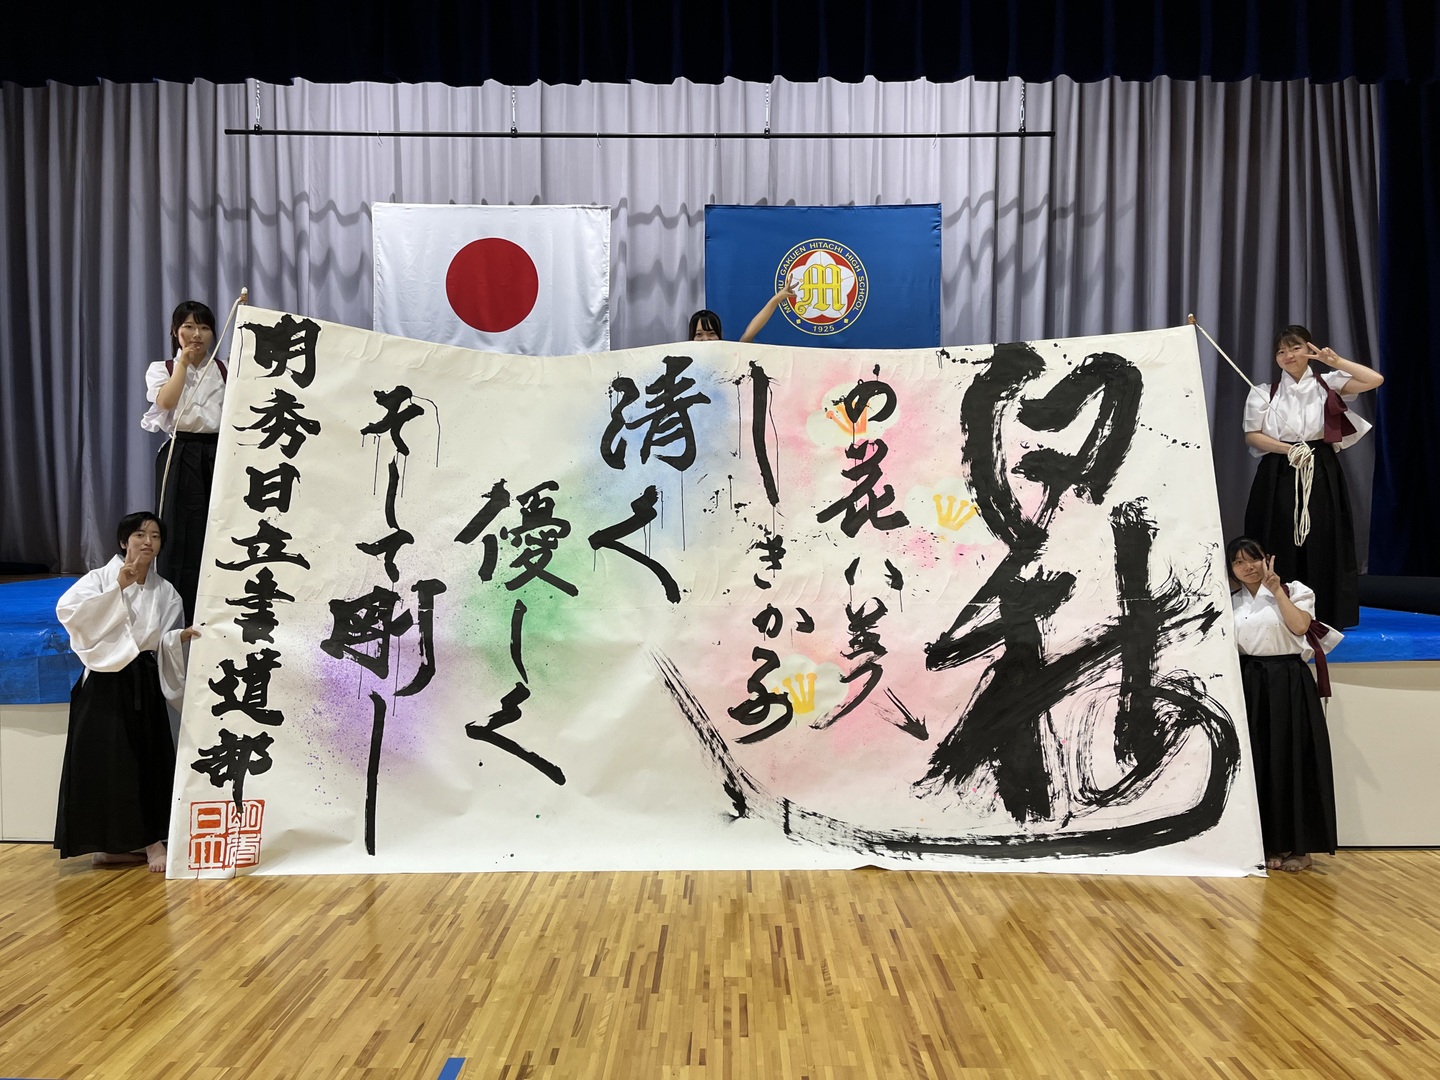 MEISHU GAKUEN HITACHI HIGH SCHOOL
M
1925
白梅
の花は美
しきかな
清く
優しく
そして剛し
明秀日立書道部
明秀
日立